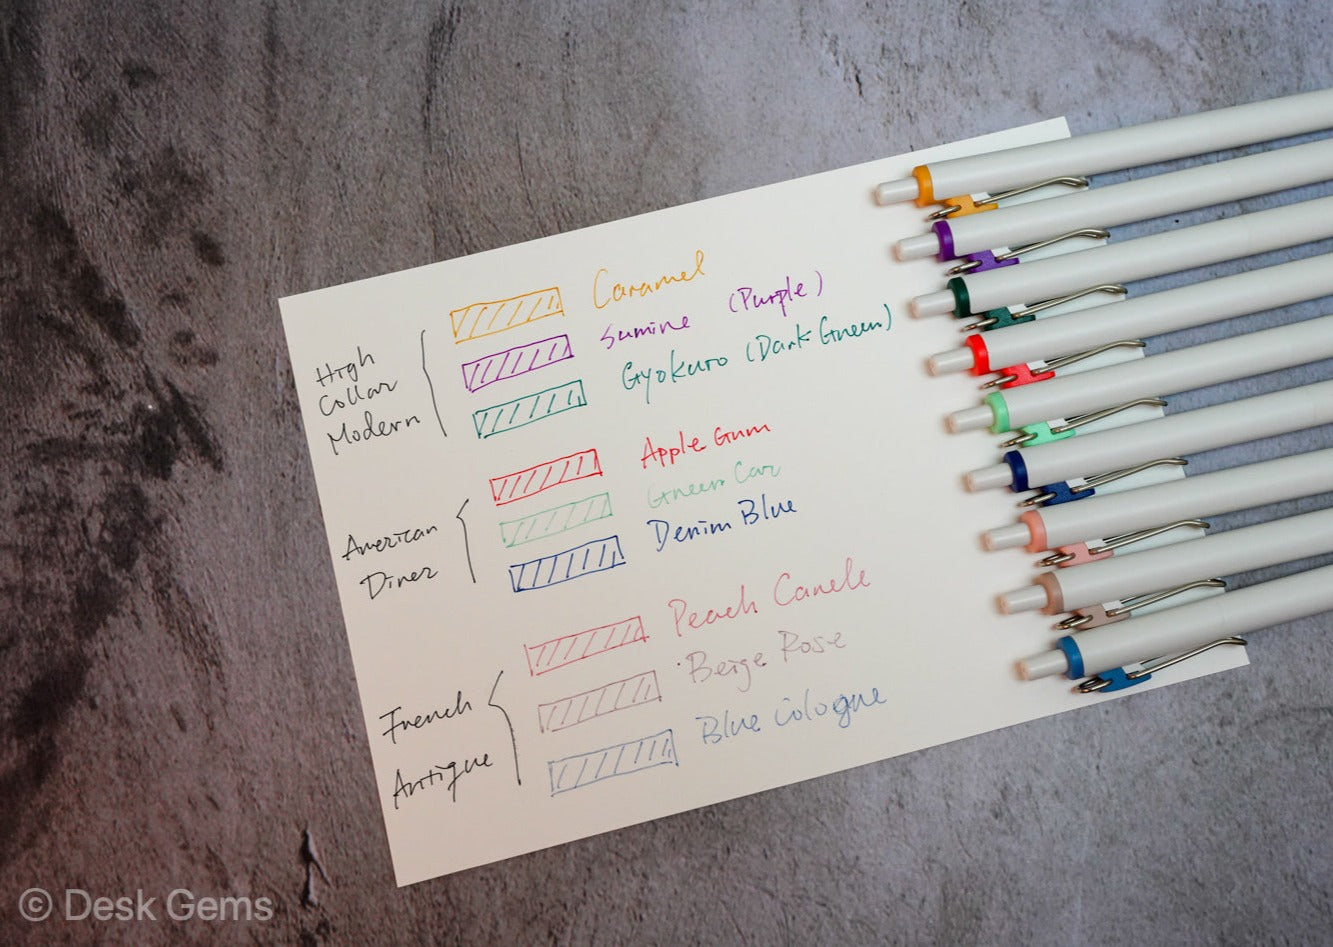 High
Collar
Modern
Caramel
Sumire (Purple)
Gyokuro (Dark Green)
American
Diner
Apple Gum
Green Car
Denim Blue
French
Antique
Peach Canele
Beige Rose
Blue Cologne
© Desk Gems